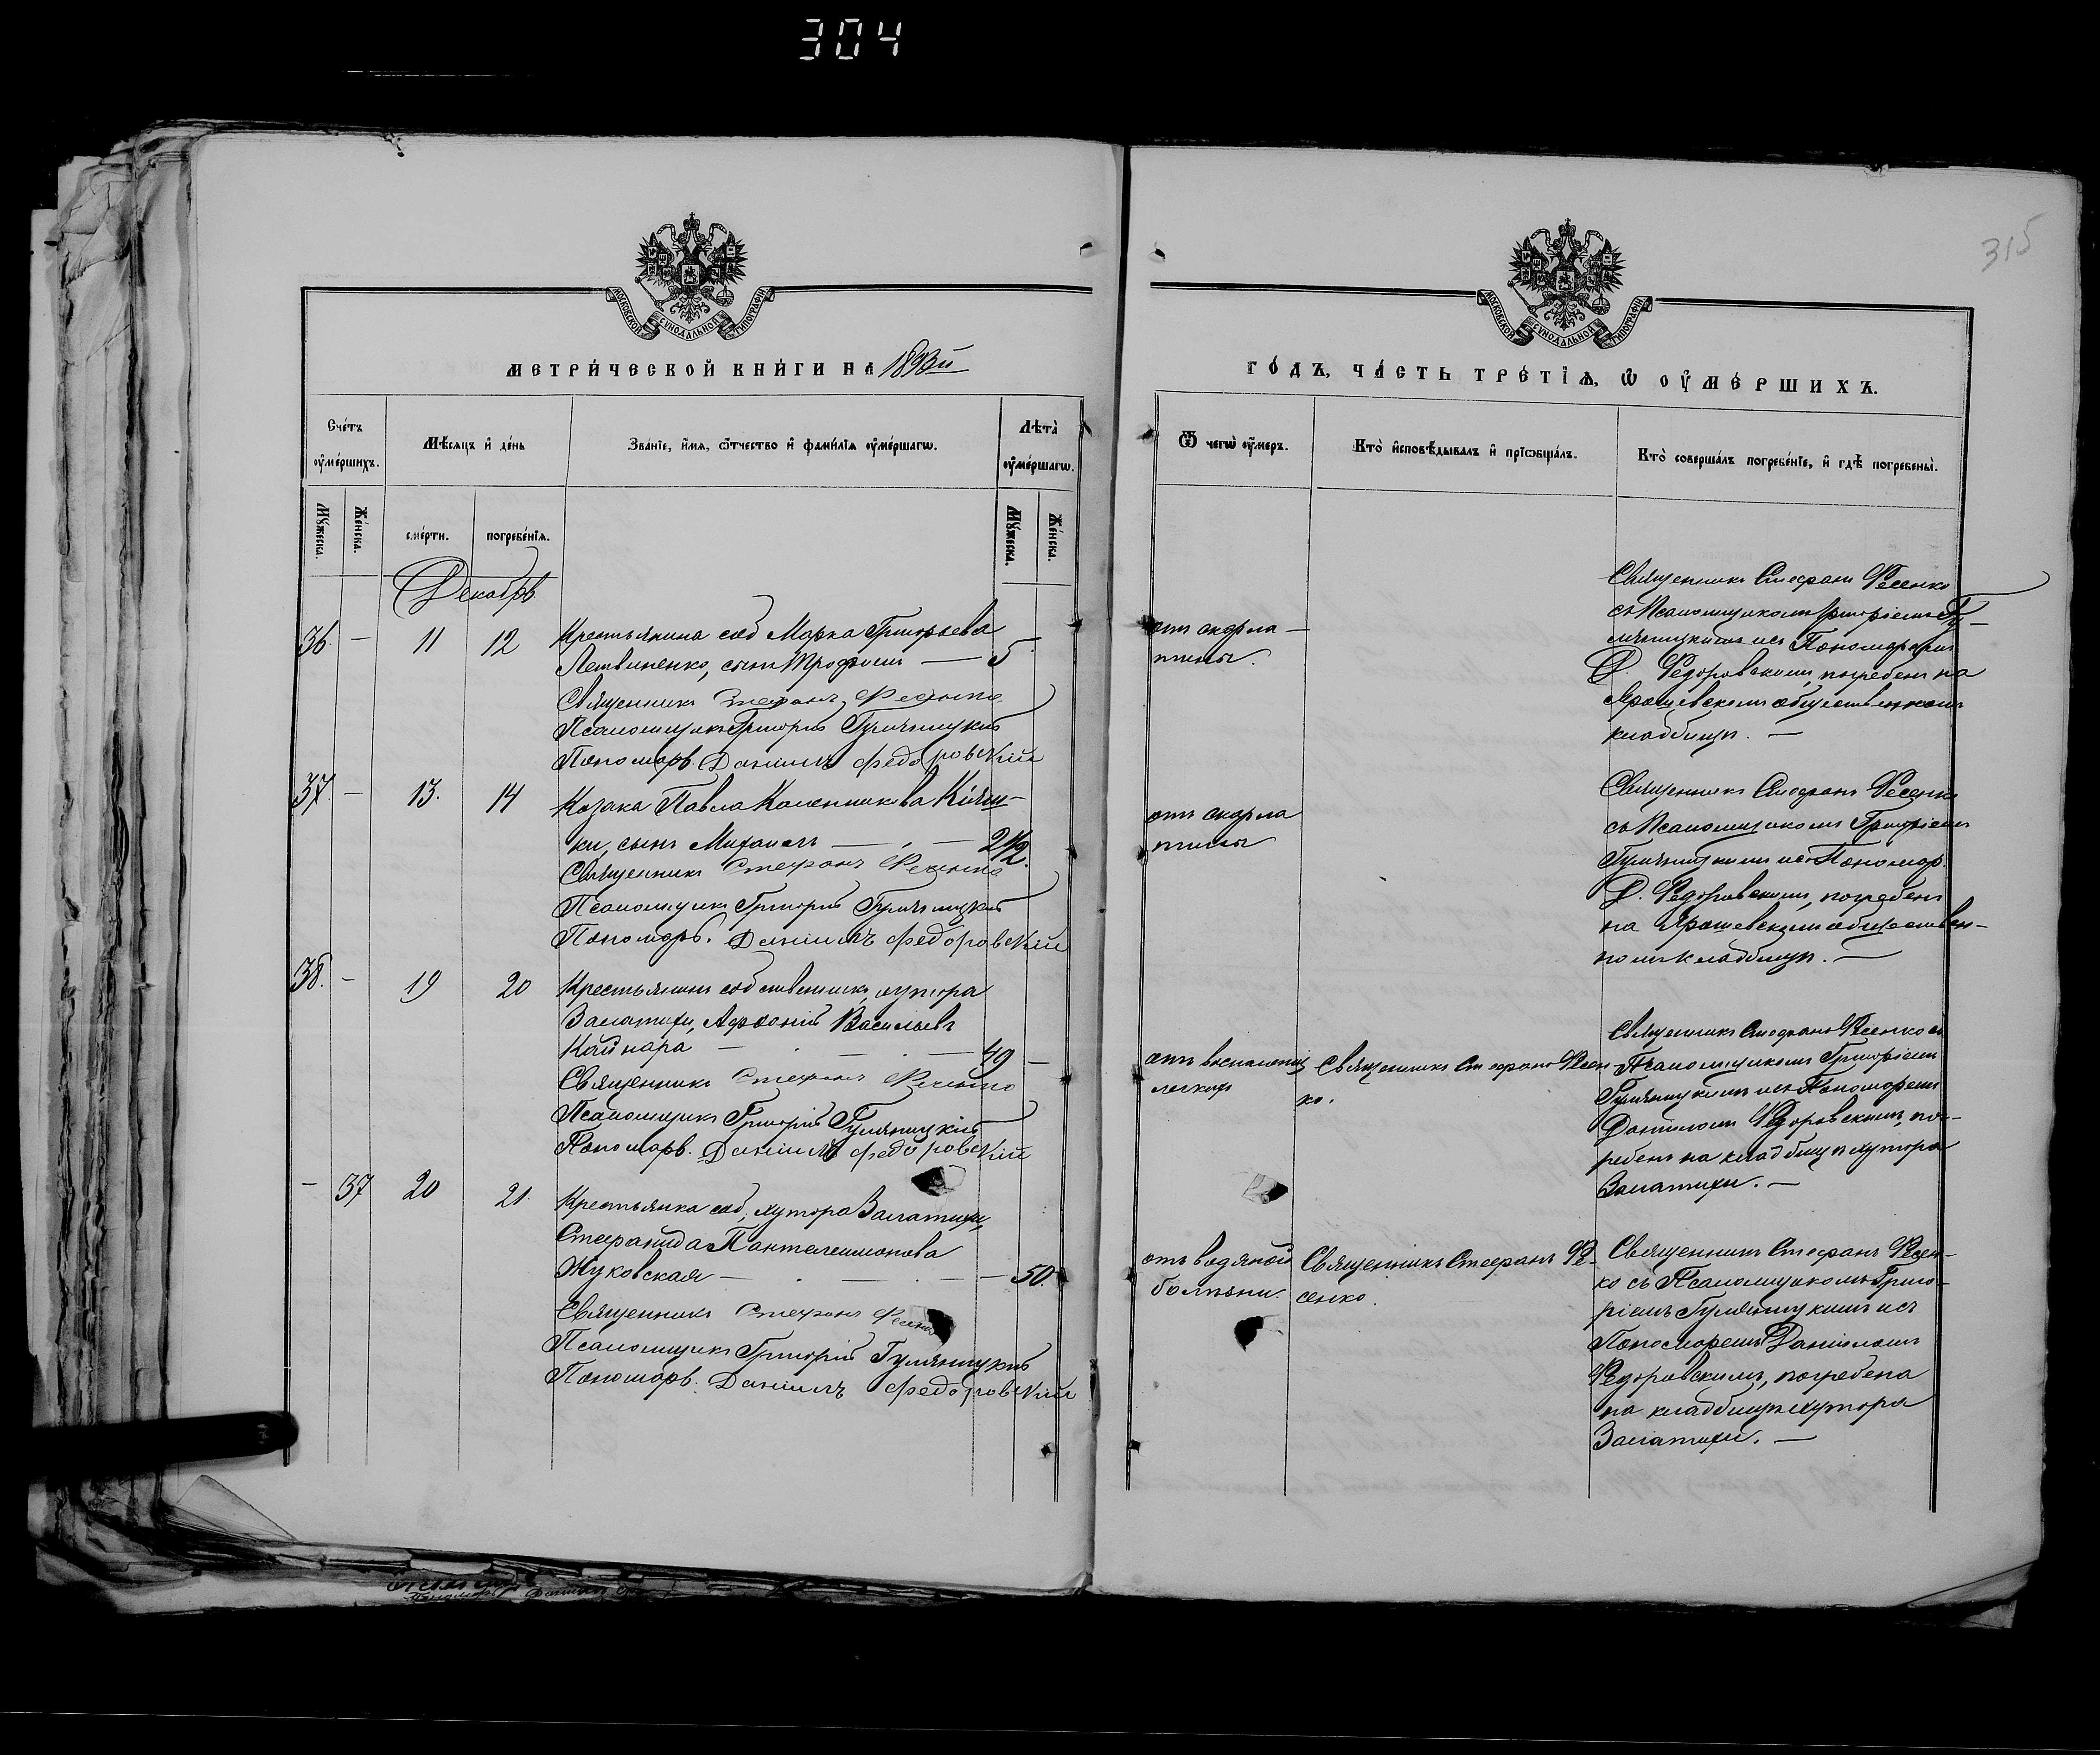 304
315
МОСКОВСКОЙ СУНОДАЛЬНОЙ ТИПОГРАФІИ
МОСКОВСКОЙ СУНОДАЛЬНОЙ ТИПОГРАФІИ
МЕТРИ́ЧЕСКОЙ КНИ́ГИ НА 1893й
ГО́ДЪ, ЧА́СТЬ ТРЕ́ТІѦ, Ѡ҆ ОУ҆МЕ́РШИХЪ.
Сче́тъ оу҆ме́ршихъ.
Мѣ́сяцъ и҆ де́нь
Зва́нїе, и҆́мя, ѻ҆́тчество и҆ фами́лїя оу҆ме́ршагѡ.
Лѣ́та оу҆ме́ршагѡ.
Ѿ чегѡ̀ оу҆́меръ.
Кто̀ и҆сповѣ́дывалъ и҆ прїѡбща́лъ.
Кто̀ соверша́лъ погребе́нїе, и҆ гдѣ̀ погребены̀.
Мꙋ́жеска.
Же́нска.
сме́рти.
погребе́нїя.
Мꙋ́жеска.
Же́нска.
Декабрь
36. — 11 12 Крестьянина соб Марка Григорьева
Литвиненко, сынъ Трофимъ — 5 —
Священникъ Стефанъ Фесенко
Псаломщикъ Григорій Гумяницкій
Пономарь Даніилъ Федоровскій
отъ скарла—
тины.
Священникъ Стефанъ Фесенко
съ Псаломщикомъ Григоріемъ Гу—
мяницкимъ и съ Пономаремъ
Д. Федоровскимъ, погребенъ на
Ярошевскомъ общественномъ
кладбищѣ. —
37. — 13. 14 Козака Павла Каленникова Кіяш-
ки, сынъ Михаилъ — 2½.
Священникъ Стефанъ Фесенко
Псаломщикъ Григорій Гумяницкій
Пономарь. Даніилъ Федоровскій
отъ скарла
тины
Священникъ Стефанъ Фесенко
съ Псаломщикомъ Григоріемъ
Гумяницкимъ и съ Пономар.
Д. Федоровскимъ, погребенъ
на Ярошевскомъ обществен—
номъ кладбищѣ. —
38. — 19 20 Крестьянинъ собственникъ, хутора
Залатихи, Афоній Васильевъ
Кайнара — 49 —
Священникъ Стефанъ Фесенко
Псаломщикъ Григорій Гумяницкій
Пономарь. Даніилъ Федоровскій
отъ воспаленія
легкихъ
Священникъ Стефанъ Фесен
ко.
Священникъ Стефанъ Фесенко съ
Псаломщикомъ Григоріемъ
Гумяницкимъ и съ Пономаремъ
Даніиломъ Федоровскимъ, пог-
ребенъ на кладбищѣ хутора
Залатихи. —
— 37 20 21. Крестьянка соб, хутора Залатихи,
Стефанида Пантелеимонова
Жуковская — — 50.
Священникъ Стефанъ Фесенко
Псаломщикъ Григорій Гумяницкій
Пономарь. Даніилъ Федоровскій
отъ водяной
болѣзни.
Священникъ Стефанъ Фе-
сенко.
Священникъ Стефанъ Фесен-
ко съ Псаломщикомъ Григо-
ріемъ Гумяницкимъ и съ
Пономаремъ Даніиломъ
Федоровскимъ, погребена
на кладбищѣ хутора
Залатихи. —